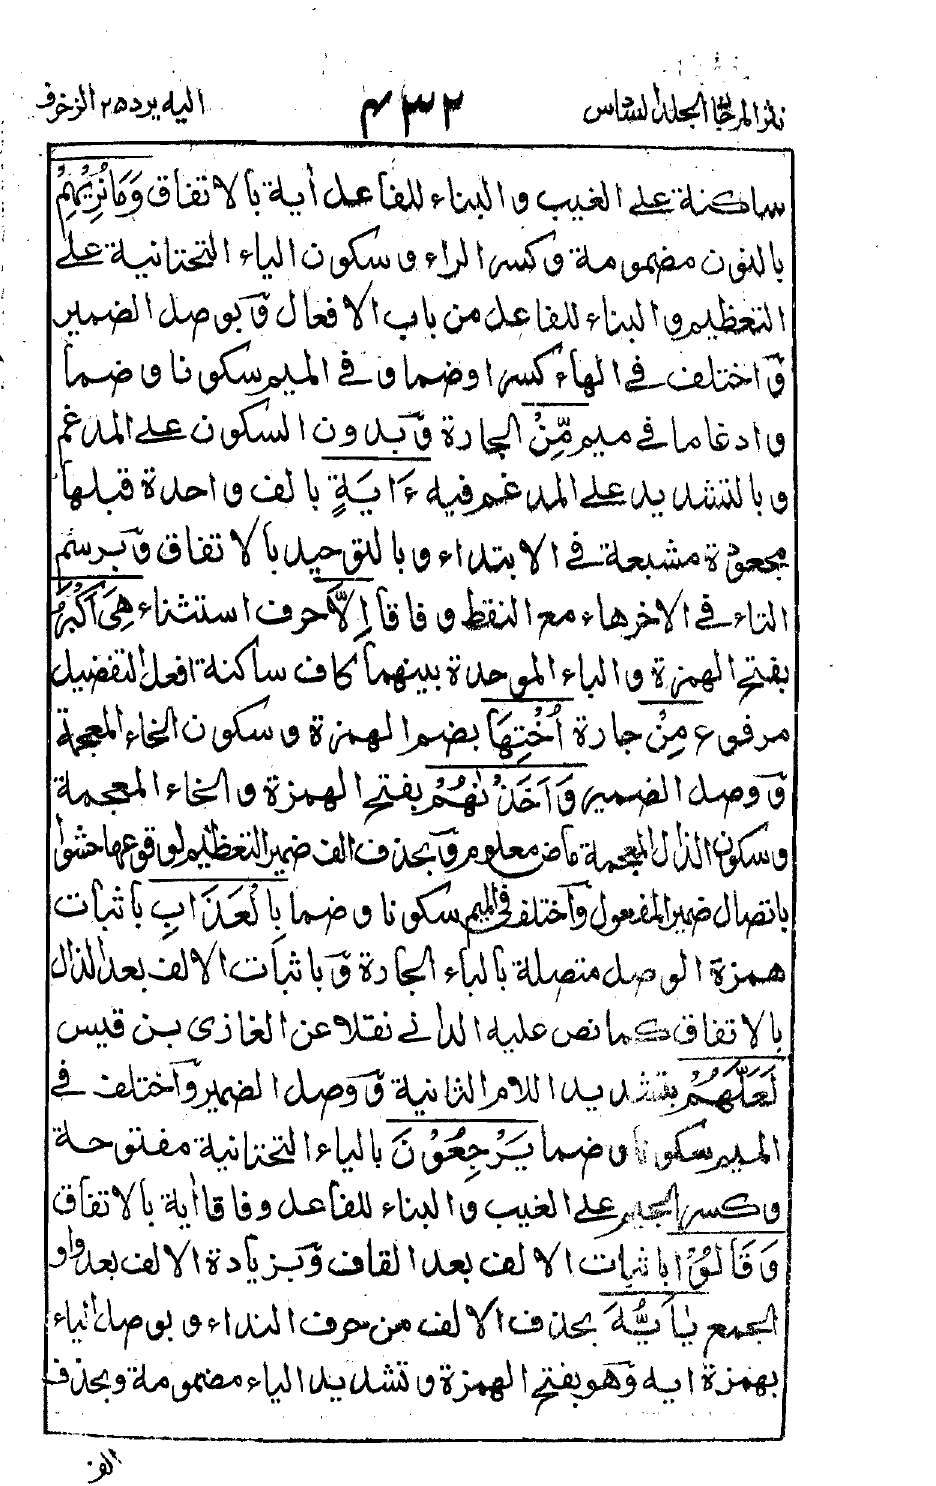 نثر المرجان المجلد السادس ٤٣٢ اليه يرد ٢٥ الزخرف
ساكنة على الغيب و البناء للفاعل أية بالاتفاق وَمَا نُرِيْهِمْ
بالنون مضمومة و كسر الراء و سكون الياء التحتانية على
التعظيم و البناء للفاعل من باب الافعال و بوصل الضمير
و اختلف في الهاء كسرا و ضما و في الميم سكونا و ضما
و ادغاما في ميم مِّنْ الجارة و بدون السكون على المدغم
و بالتشديد على المدغم فيه ءَايَةٍ بالف واحدة قبلها
مجعودة مشبعة في الابتداء و بالتوحيد بالاتفاق و برسم
التاء في الاخر هاء مع النقط وفاقا اِلَّا حرف استثناء هِيَ اَكْبَرُ
بفتح الهمزة و الباء الموحدة بينهما كاف ساكنة افعل التفضيل
مرفوع مِنْ جارة اُخْتِهَا بضم الهمزة و سكون الخاء المعجمة
و وصل الضمير وَ اَخَذْنٰهُمْ بفتح الهمزة و الخاء المعجمة
و سكون الذال المعجمة ماض معلوم و بحذف الف ضمير التعظيم لوقوعها حشوا
باتصال ضمير المفعول و اختلف في الميم سكونا و ضما بِالْعَذَابِ باثبات
همزة الوصل متصلة بالباء الجارة و باثبات الالف بعد الذال
بالاتفاق كما نص عليه الداني نقلا عن الغازى بن قيس
لَعَلَّهُمْ بتشديد اللام الثانية و وصل الضمير و اختلف في
الميم سكونا و ضما يَرْجِعُوْنَ بالياء التحتانية مفتوحة
و كسر الجيم على الغيب و البناء للفاعل وفاقا أية بالاتفاق
وَ قَالُوْا باثبات الالف بعد القاف و بزيادة الالف بعد واو
الجمع يٰاَيُّهَ بحذف الالف من حرف النداء و بوصل الياء
بهمزة ايه و هو بفتح الهمزة و تشديد الياء مضمومة و بحذف
الف